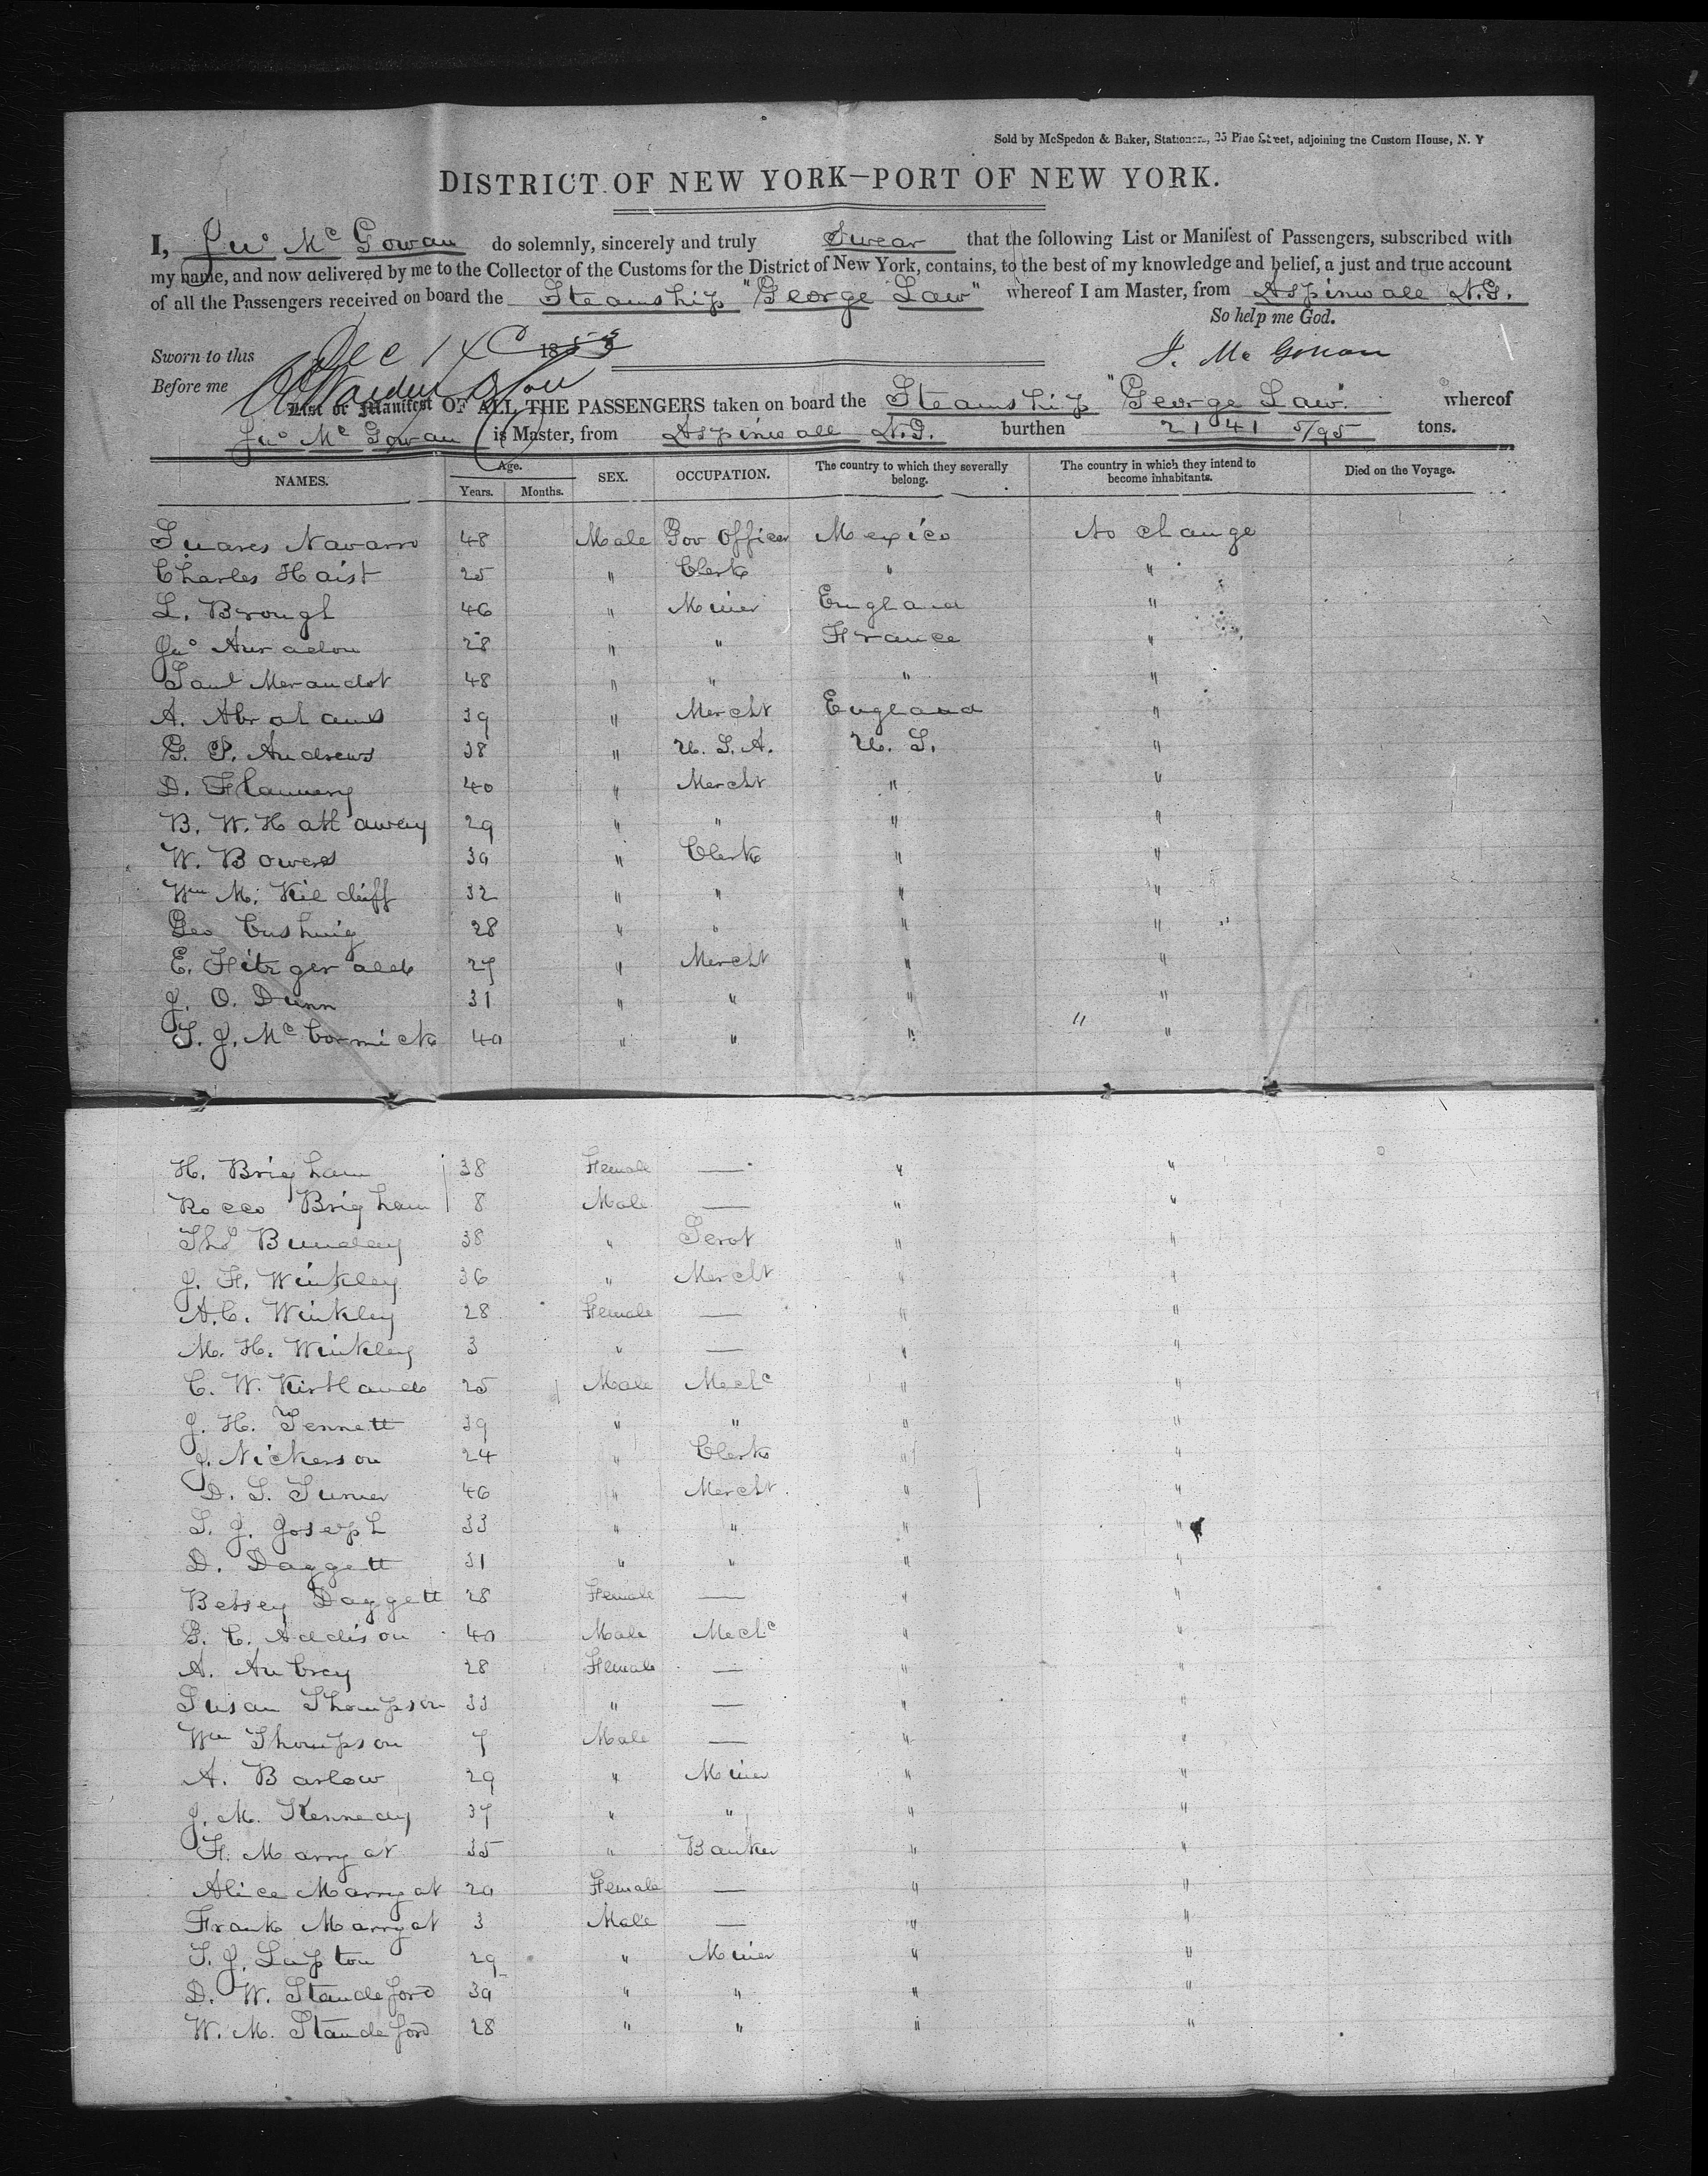 Sold by McSpedon & Baker, Stationers, 25 Pine Street, adjoining the Custom House, N. Y
DISTRICT OF NEW YORK—PORT OF NEW YORK.
I, Jno Mc Gowan do solemnly, sincerely and truly Swear that the following List or Manifest of Passengers, subscribed with
my name, and now delivered by me to the Collector of the Customs for the District of New York, contains, to the best of my knowledge and belief, a just and true account
of all the Passengers received on board the Steamship "George Law" whereof I am Master, from Aspinwall N.G.
So help me God.
Sworn to this Dec 14 1853 J. Mc Gowan
Before me
List or Manifest OF ALL THE PASSENGERS taken on board the Steamship "George Law" whereof
Jno Mc Gowan is Master, from Aspinwall N.G. burthen 2141 5/95 tons.
NAMES. Age. Years. Months. SEX. OCCUPATION. The country to which they severally belong. The country in which they intend to become inhabitants. Died on the Voyage.
Suares Navarro 48 Male Gov Officer Mexico No change
Charles Haist 25 " Clerk " "
L. Brough 46 " Miner England "
Jno 28 " " France "
Paul Meraudot 48 " " " "
A. Abrahams 39 " Mercht England "
G. P. Andrews 38 " U. S. A. U. S. "
D. Flannery 40 " Mercht " "
B. W. Hathaway 29 " " " "
W. Bowers 30 " Clerk " "
Wm M. Kilduff 32 " " " "
Geo Cushing 28 " " " "
E. Fitzgerald 27 " Mercht " "
J. O. Dunn 31 " " " "
T. J. Mc Cormick 40 " " " " "
H. Brigham 38 Female — " "
Rocco Brigham 8 Male — " "
Thos Bunday 38 " Servt " "
J. F. Winkley 36 " Mercht " "
A. C. Winkley 28 Female — " "
M. H. Winkley 3 " — " "
C. W. Kirtland 25 Male Mechc " "
J. H. Tennett 39 " " " "
J. Nickerson 24 " Clerk " "
D. S. Turner 46 " Mercht. " "
S. J. Joseph 33 " " " "
D. Daggett 31 " " " "
Betsey Daggett 28 Female — " "
G. C. Addison 40 Male Mechc " "
A. Aubrey 28 Female — " "
Susan Thompson 33 " — " "
Wm Thompson 7 Male — " "
A. Barlow 29 " Miner " "
J. M. Kennedy 37 " " " "
F. Marryat 35 " Banker " "
Alice Marryat 20 Female — " "
Frank Marryat 3 Male — " "
T. J. Lupton 29 " Miner " "
D. W. Standeford 30 " " " "
W. M. Standeford 28 " " " "